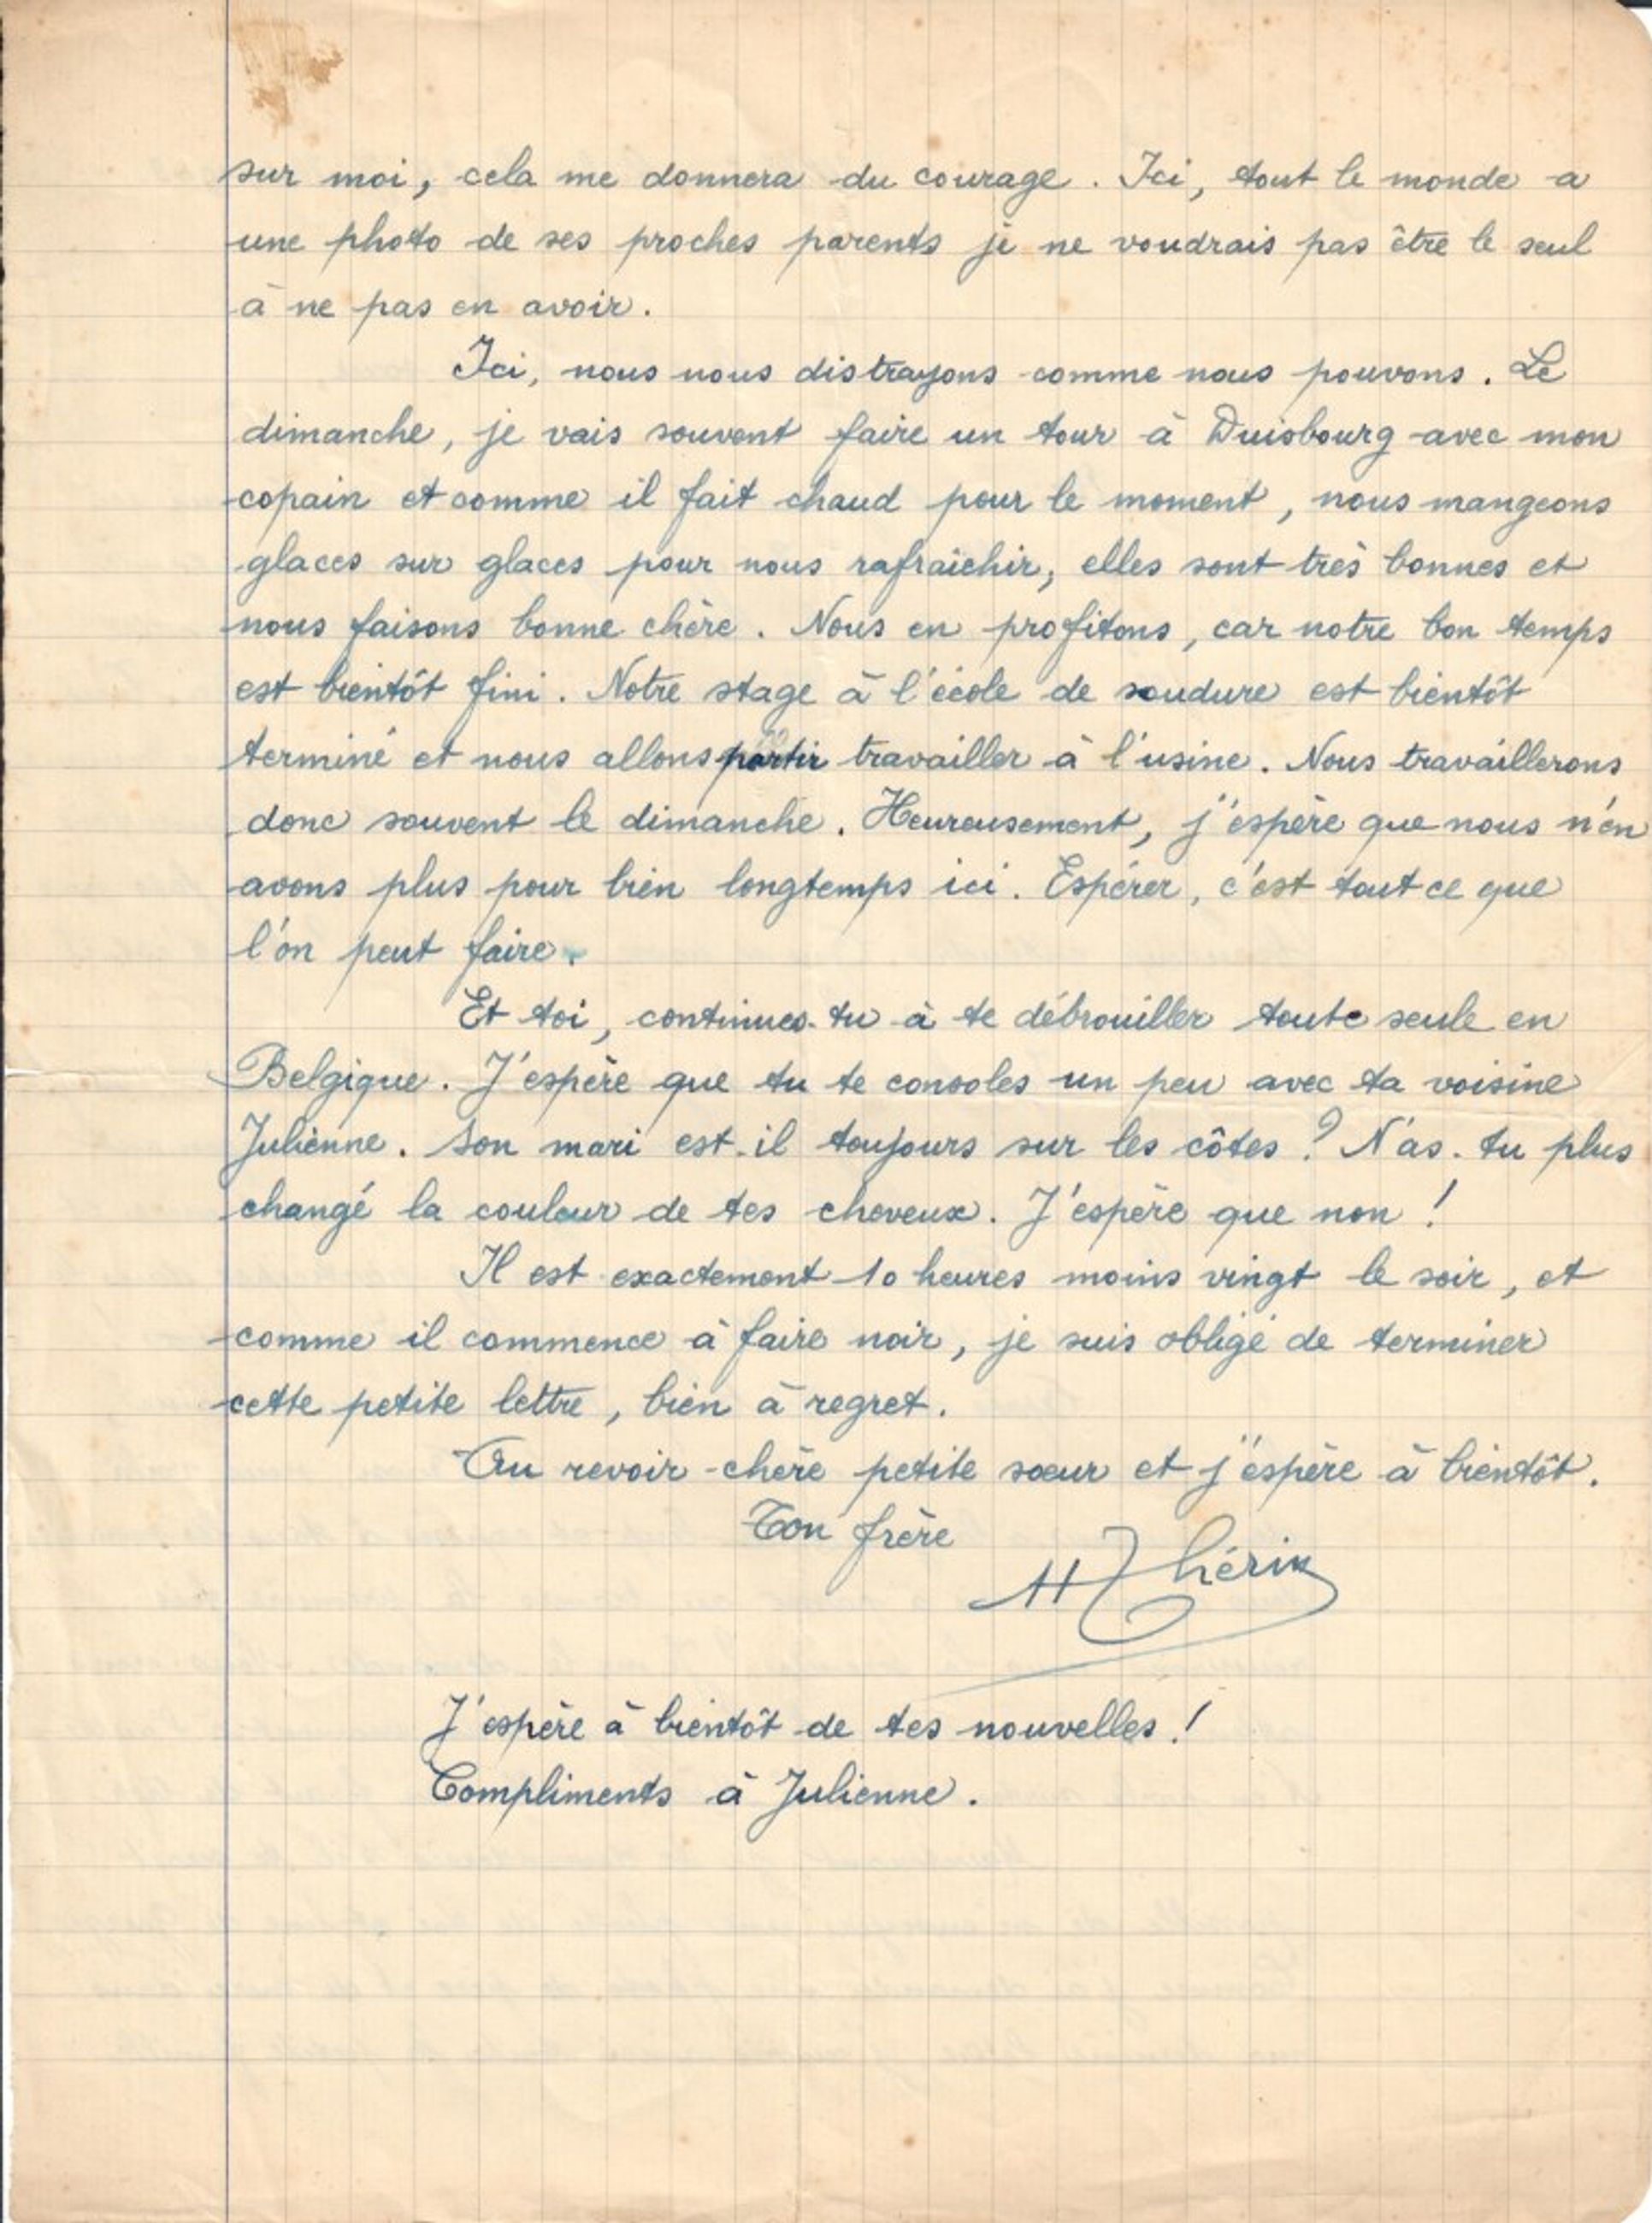 sur moi, cela me donnera du courage. Ici, tout le monde a
une photo de ses proches parents je ne voudrais pas être le seul
à ne pas en avoir.
Ici, nous nous distrayons comme nous pouvons. Le
dimanche, je vais souvent faire un tour à Duisbourg avec mon
copain et comme il fait chaud pour le moment, nous mangeons
glaces sur glaces pour nous rafraîchir, elles sont très bonnes et
nous faisons bonne chère. Nous en profitons, car notre bon temps
est bientôt fini. Notre stage à l'école de soudure est bientôt
terminé et nous allons partir travailler à l'usine. Nous travaillerons
donc souvent le dimanche. Heureusement, j'espère que nous n'en
avons plus pour bien longtemps ici. Espérer, c'est tout ce que
l'on peut faire.
Et toi, continues-tu à te débrouiller toute seule en
Belgique. J'espère que tu te consoles un peu avec ta voisine
Julienne. Son mari est-il toujours sur les côtes ? N'as-tu plus
changé la couleur de tes cheveux. J'espère que non !
Il est exactement 10 heures moins vingt le soir, et
comme il commence à faire noir, je suis obligé de terminer
cette petite lettre, bien à regret.
Au revoir chère petite sœur et j'espère à bientôt.
Ton frère
J'espère à bientôt de tes nouvelles !
Compliments à Julienne.